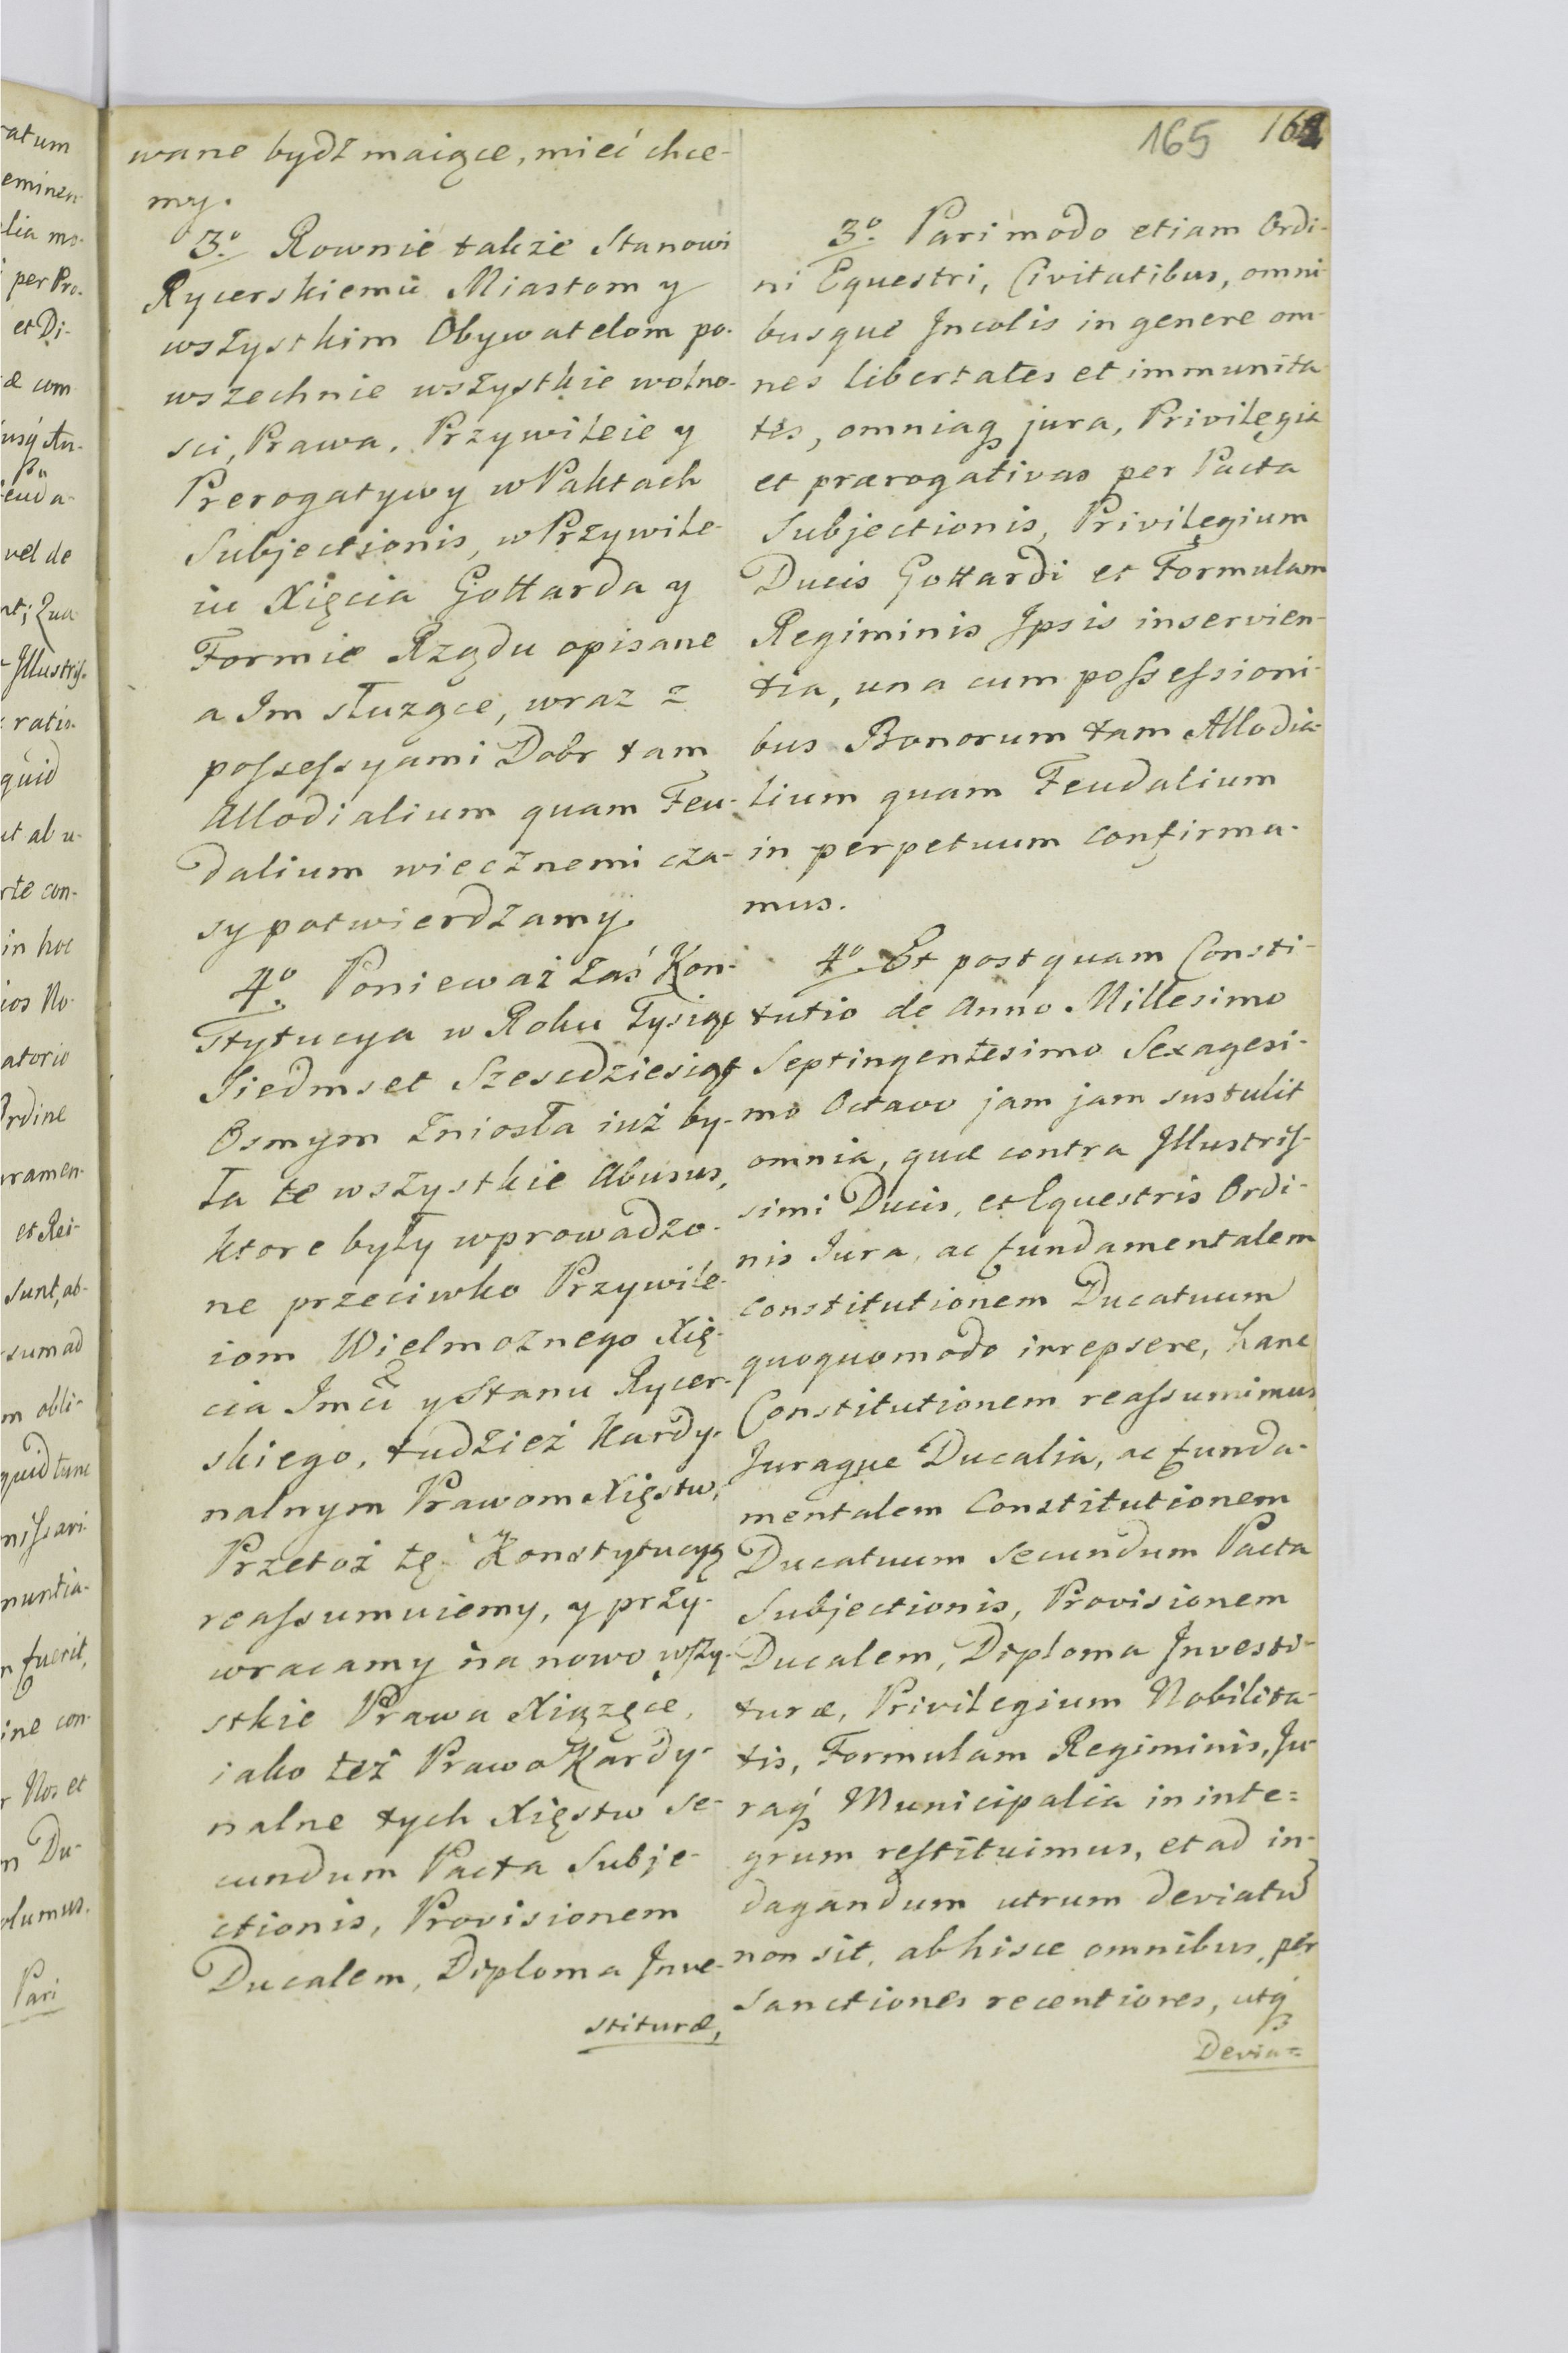 165 164
wane bydź maiące, mieć chce-
my.
3.º Rownie także Stanowi
Rycerskiemu Miastom y
wszystkim Obywatelom po-
wszechnie wszystkie wolno-
sci, Prawa, Przywileie y
Prerogatywy w Paktach
Subjectionis, w Przywile-
iu Xięcia Gottarda y
Formie Rządu opisane
a Im służące, wraz z
possessyami Dobr tam
Allodialium quam Feu-
dalium wiecznemi cza-
sy potwierdzamy.
4.º Ponieważ zaś Kon-
stytucya w Roku Tysiąc
Siedmset Szesćdziesiąt
Osmym zniosła iuż by-
ła te wszystkie Abusus,
ktore były wprowadzo-
ne przeciwko Przywile-
iom Wielmożnego Xię-
cia Imci y Stanu Rycer-
skiego, tudzież Kardy-
nalnym Prawom Xięstw,
Przetoż tę Konstytucyą
reassumuiemy, y przy-
wracamy na nowo wszy-
stkie Prawa Xiążęce,
iako też Prawa Kardy-
nalne tych Xięstw se-
cundum Pacta Subje-
ctionis, Provisionem
Ducalem, Diploma Inve-
stituræ,
3.º Pari modo etiam Ordi-
ni Equestri, Civitatibus, omni-
busque Incolis in genere om-
nes libertates et immunita-
tes, omniaq jura, Privilegia
et prærogativas per Pacta
Subjectionis, Privilegium
Ducis Gottardi et Formulam
Regiminis Ipsis inservien-
tia, una cum possessioni-
bus Bonorum tam Allodia-
lium quam Feudalium
in perpetuum confirma-
mus.
4.º Et postquam Consti-
tutio de Anno Millesimo
Septingentesimo Sexagesi-
mo Octavo jam jam sustulit
omnia, quæ contra Illustris-
simi Ducis, et Equestris Ordi-
nis Iura, ac fundamentalem
constitutionem Ducatuum
quoquomodo irrepsere, hanc
Constitutionem reassumimus
Juraque Ducalia, ac funda-
mentalem Constitutionem
Ducatuum secundum Pacta
Subjectionis, Provisionem
Ducalem, Diploma Investi-
turæ, Privilegium Nobilita-
tis, Formulam Regiminis, Ju-
raq Municipalia in inte=
grum restituimus, et ad in-
dagandum utrum deviatũ
non sit, ab hisce omnibus, per
sanctiones recentiores, utq
Devia=